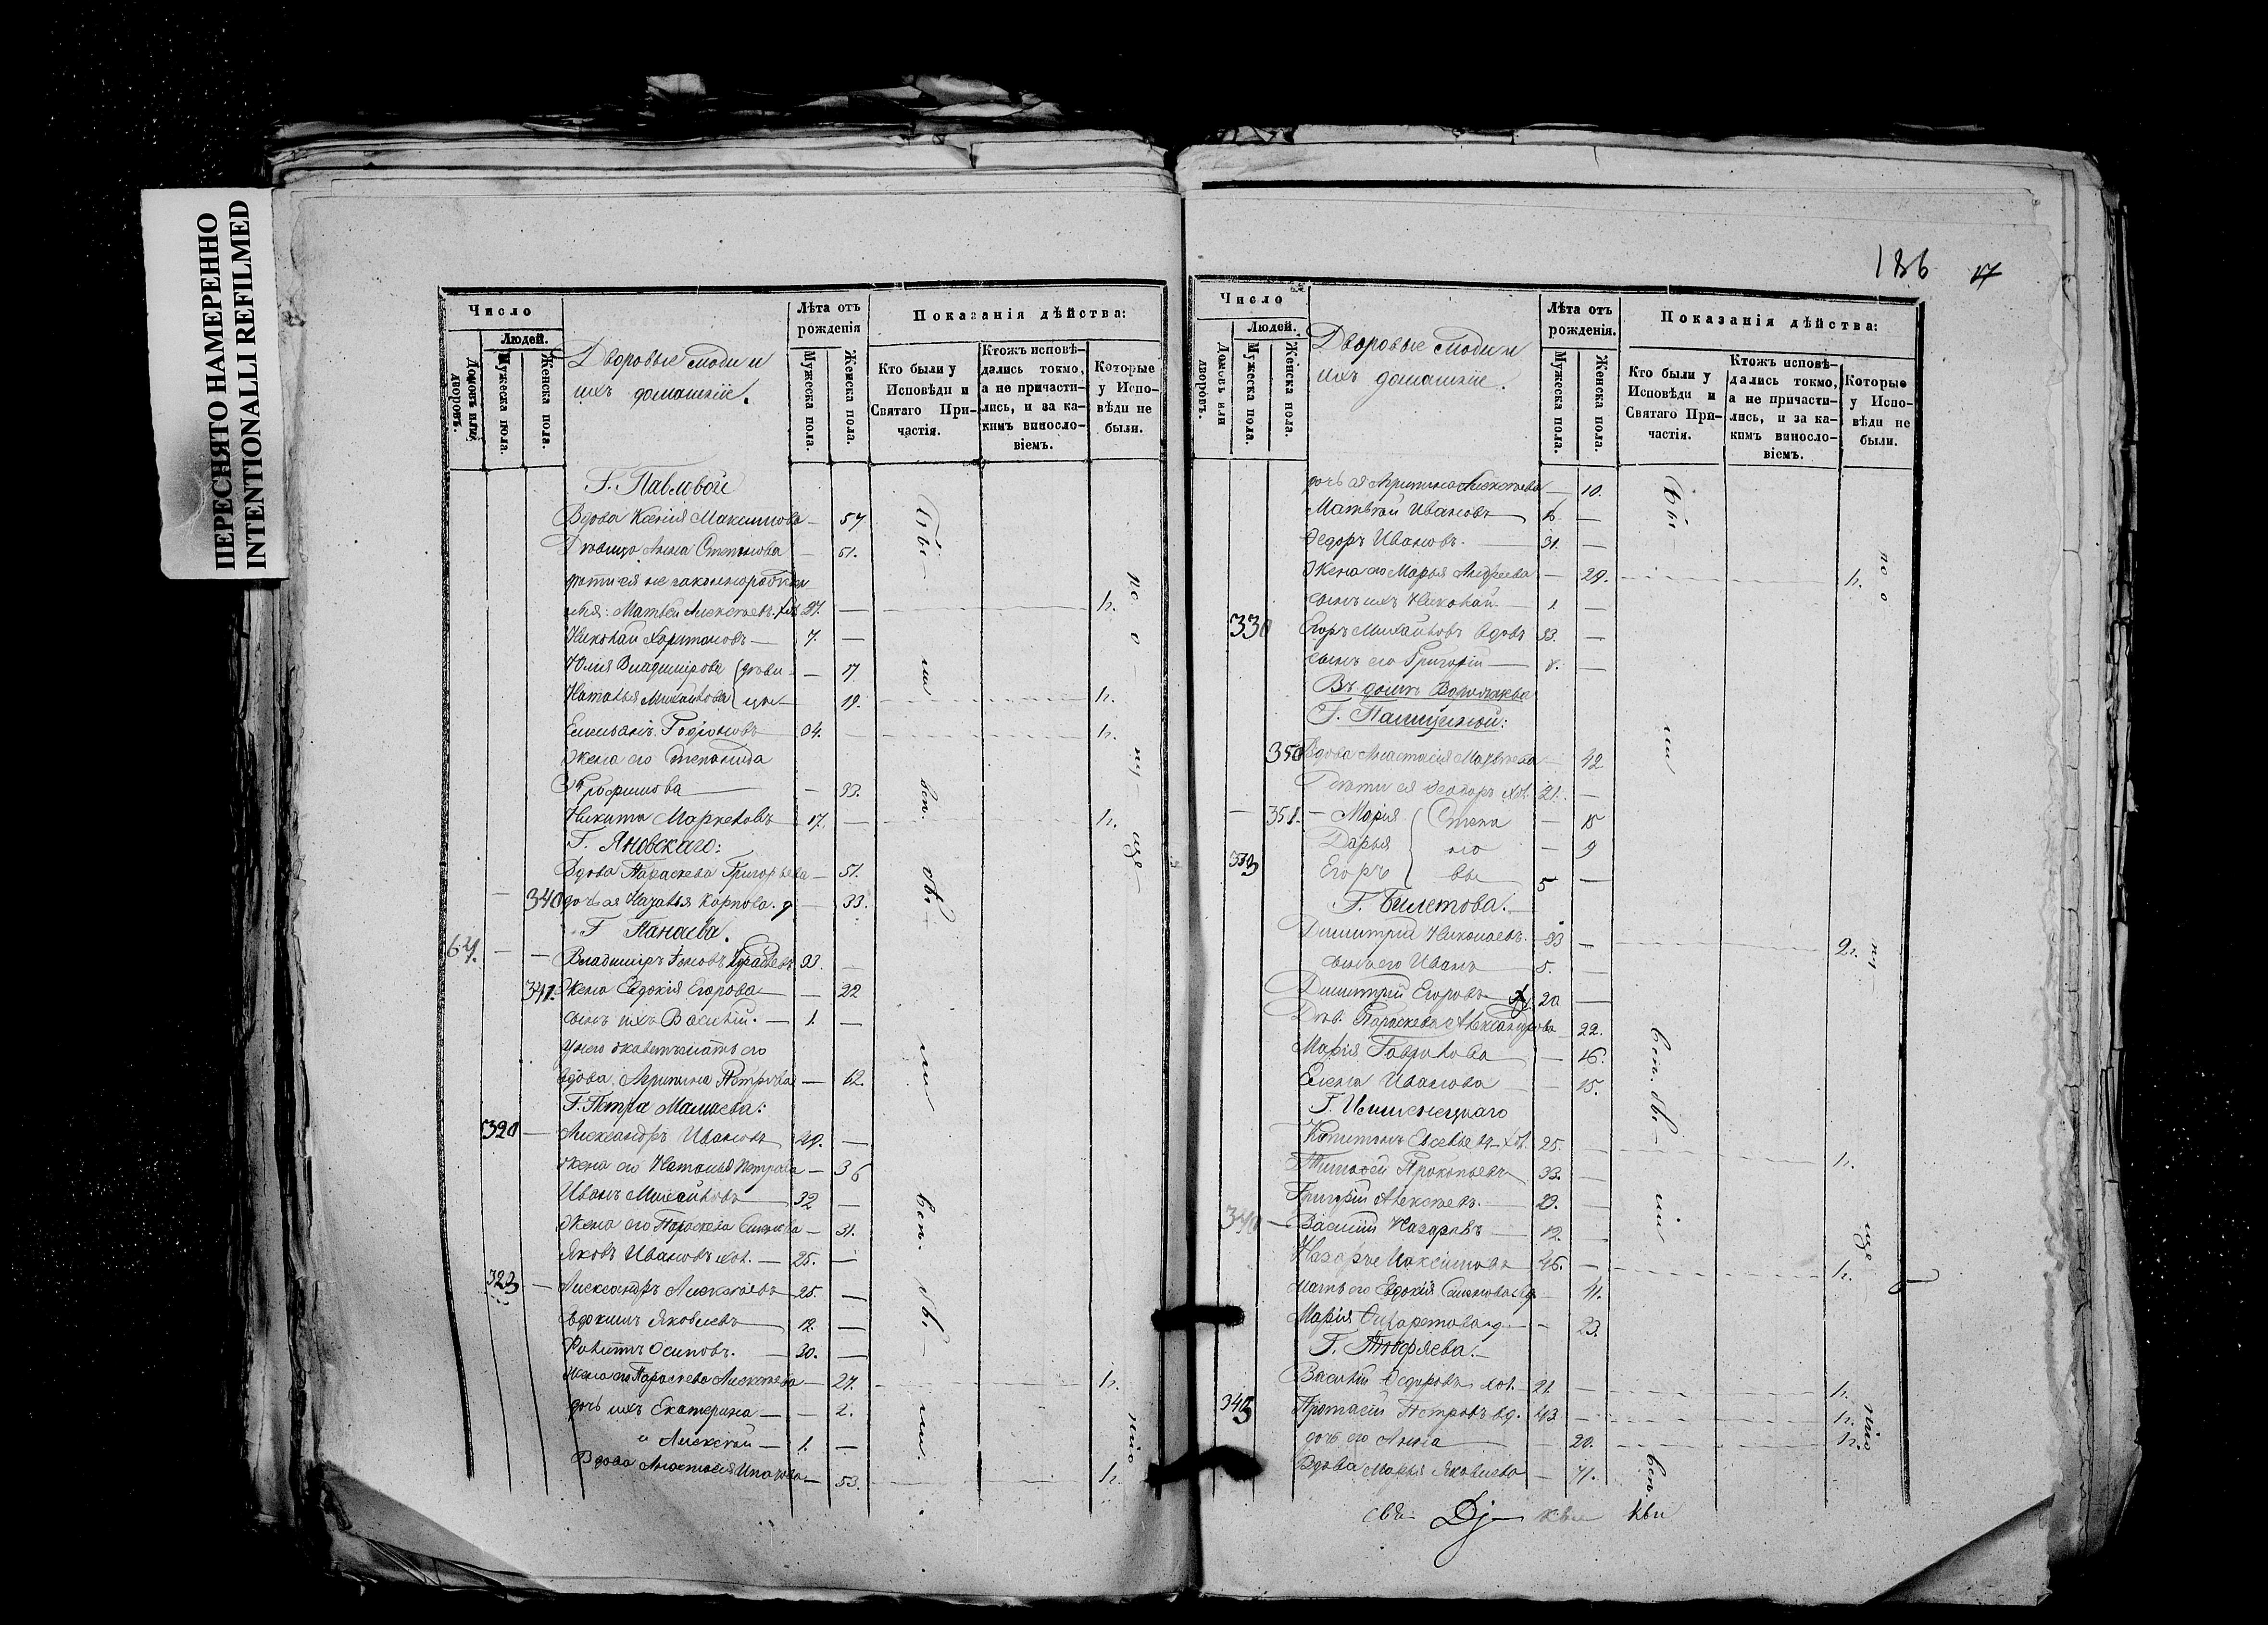 ПЕРЕСНЯТО НАМЕРЕННО
INTENTIONALLI REFILMED
Число
Людей.
Домовъ или дворовъ.
Мужеска пола.
Женска пола.
Дворовые люди и
ихъ домашніе.
Лѣта отъ рожденія
Мужеска пола.
Женска пола.
Показанія дѣйства:
Кто были у Исповѣди и Святаго При-частія.
Ктожъ исповѣ-дались токмо, а не причасти-лись, и за ка-кимъ винословіемъ.
Которые у Испо-вѣди не были.
Г. Павловой
Вдова Ксенія Максимова — 57
Дѣвица Анна Степанова — 51.
дѣти ея незаконнорожден
ныя: Матвей Алексѣевъ хол. 27. — h.
Николай Харитоновъ — 7. —
Юлія Владимірова дѣви — 17
Наталья Михайлова цы — 19. h.
Емельянъ Родіоновъ 34. — h.
Жена его Степанида
Трофимова — 33.
Никита Маркеловъ 17. — h.
Г. Яновскаго:
Вдова Параскева Григорьева — 51.
— 340 дочь ея Наталья Карпова. д — 33.
Г. Панаева.
64. — — Владиміръ 33. —
341. Жена Евдокія Егорова — 22
сынъ ихъ Василій. — 1. —
У него жъ мать его
вдова Агрипина Петрова — 62.
Г. Петра Мамаева:
320 — Александръ Ивановъ 49. —
жена его Наталья Петрова — 36
Иванъ Михайловъ 32 —
Жена его Параскева — 31.
Яковъ Ивановъ хол. — 25. —
323 — Александръ Алексѣевъ 25. —
Евдокимъ Яковлевъ 12. —
Филиппъ Осиповъ. — 30. —
жена его Параскева Алексѣева — 27. h.
дочь ихъ Екатерина — — 2.
и Алексѣй — 1. —
Вдова Анастасія — 53. h.
Бы ли исп. св. ли исп. св. ли.
по о ну ще нію
186 17
Число
Людей.
Домовъ или дворовъ.
Мужеска пола.
Женска пола.
Дворовые люди и
ихъ домашніе.
Лѣта отъ рожденія.
Мужеска пола.
Женска пола.
Показанія дѣйства:
Кто были у Исповѣди и Святаго При-частія.
Ктожъ исповѣ-дались токмо, а не причасти-лись, и за ка-кимъ винословіемъ.
Которые у Испо-вѣди не были.
дочь ея Агрипина Алексѣева — 10.
Матвей Ивановъ 16. —
Федоръ Ивановъ. — 31. —
Жена его Марья Андреева — 29. h.
сынъ ихъ Николай — 1. —
330 Егоръ Михайловъ вдовъ 33. —
сынъ его Григорій — 8. —
Въ домѣ
Г.
350 Вдова Анастасія Матвѣева — 42
Дѣти ея Ѳеодоръ хол. 21. —
— 351. — Марія Степа — 15
Дарья но — 9
333 Егоръ вы 5 —
Г. Билетова.
Димитрій Николаевъ. — 33 — 2h.
сынъ его Иванъ 5. —
Димитрій Егоровъ 20 —
Дѣв. Параскева Александрова 22.
Марія Гаврилова — 16.
Елена Иванова — 15.
Г.
Капитонъ Евсевьевъ хол. 25. — h.
Тимофей Прокопьевъ 33. —
Григорій Алексѣевъ. — 23. —
340 — Василій Назаровъ — 12. —
Назаръ Максимовъ 46. — h.
мать его Евдокія Семенова вд. — 71.
Марія — 23.
Г.
Василій Федоровъ хол. 21. — h.
343 Протасій Петровъ вд. 43. — h.
дочь его Анна — 20. h.
Вдова Марья Яковлева — 71.
Бы ли исп. св. ли исп.
по о ну ще нію